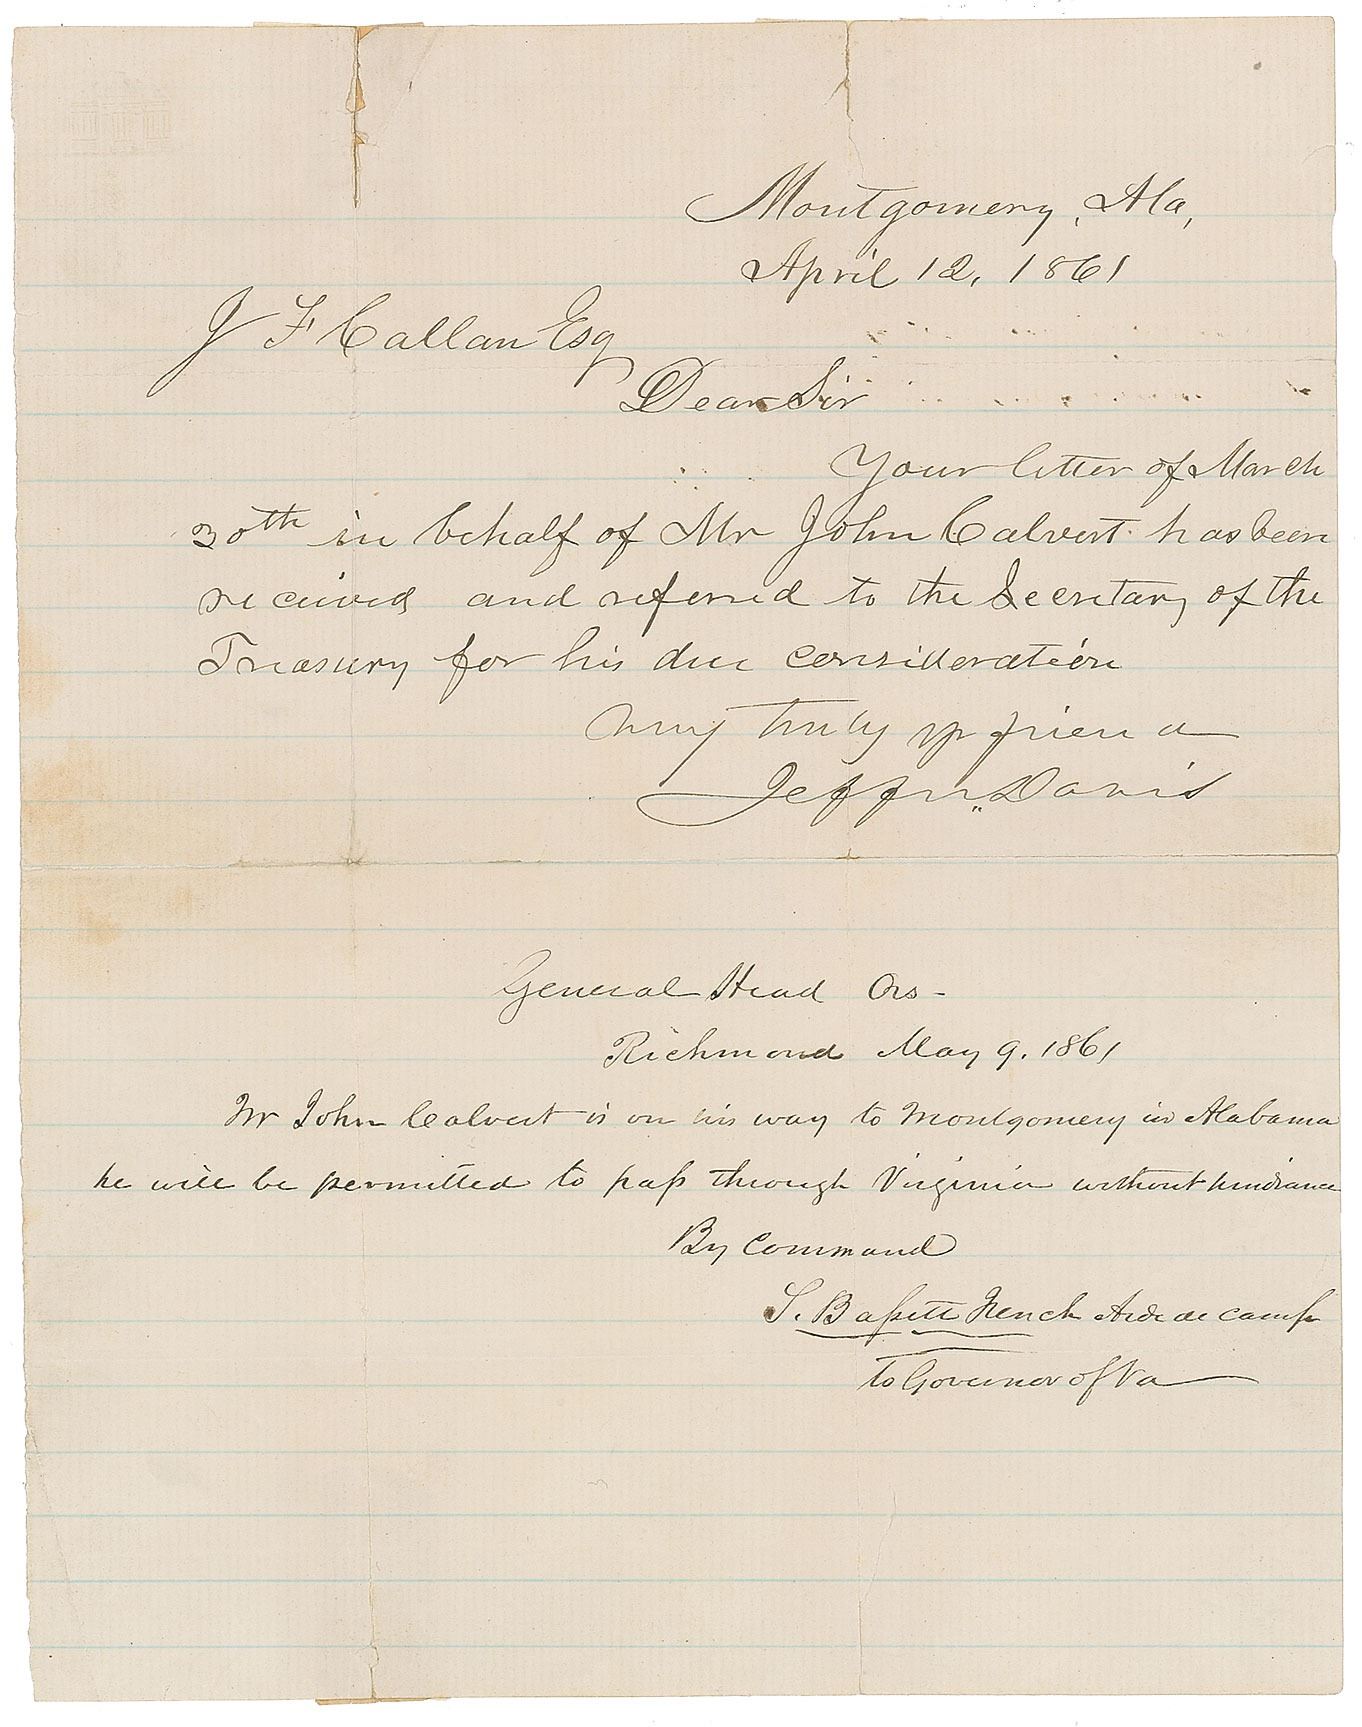 Montgomery, Ala,
April 12, 1861
J F Callan Esq
Dear Sir
Your letter of March
30th in behalf of Mr John Calvert has been
received and referred to the Secretary of the
Treasury for his due consideration
very truly yr friend
Jeffn. Davis
General Head Qrs -
Richmond May 9. 1861
Mr John Calvert is on his way to Montgomery in Alabama
he will be permitted to pass through Virginia without hindrance
By Command
S. Bassett French Aide de camp
to Governor of Va